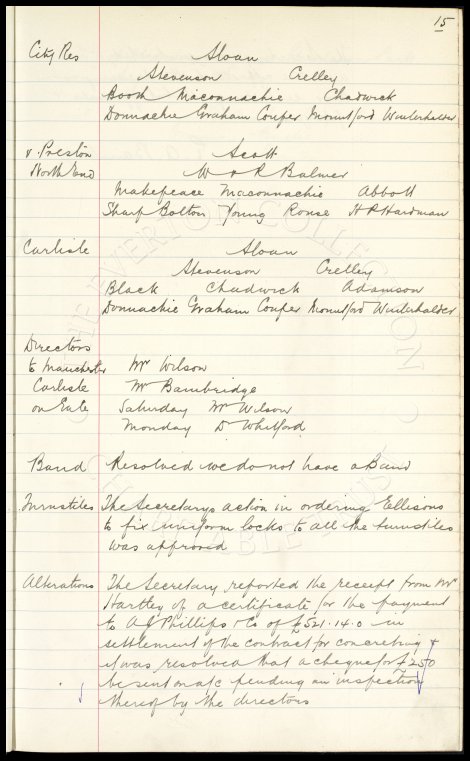 15
City Res Sloan
Stevenson Crelley
Booth Maconnachie Chadwick
Donnachie Graham Couper Mountford Winterhalder
v. Preston Scott
North End W & R Balmer
Makepeace Maconnachie Abbott
Sharp Bolton Young Rouse H P Hardman
Carlisle Sloan
Stevenson Crelley
Black Chadwick Adamson
Donnachie Graham Couper Mountford Winterhalder
Directors
to Manchester Mr Wilson
Carlisle Mr Bainbridge
on Gate Saturday Mr Wilson
Monday Dr Whitford
Band Resolved we do not have a Band
Turnstiles The Secretarys action in ordering Ellisons
to fix uniform locks to all the turnstiles
was approved
Alterations The Secretary reported the receipt from Mr
Hartley of a certificate for the payment
to A J Phillips & Co of £521.14.0 in
settlement of the contract for concreting &
it was resolved that a cheque for £250
be sent on a/c pending an inspection
thereof by the directors
THE EVERTON COLLECTION